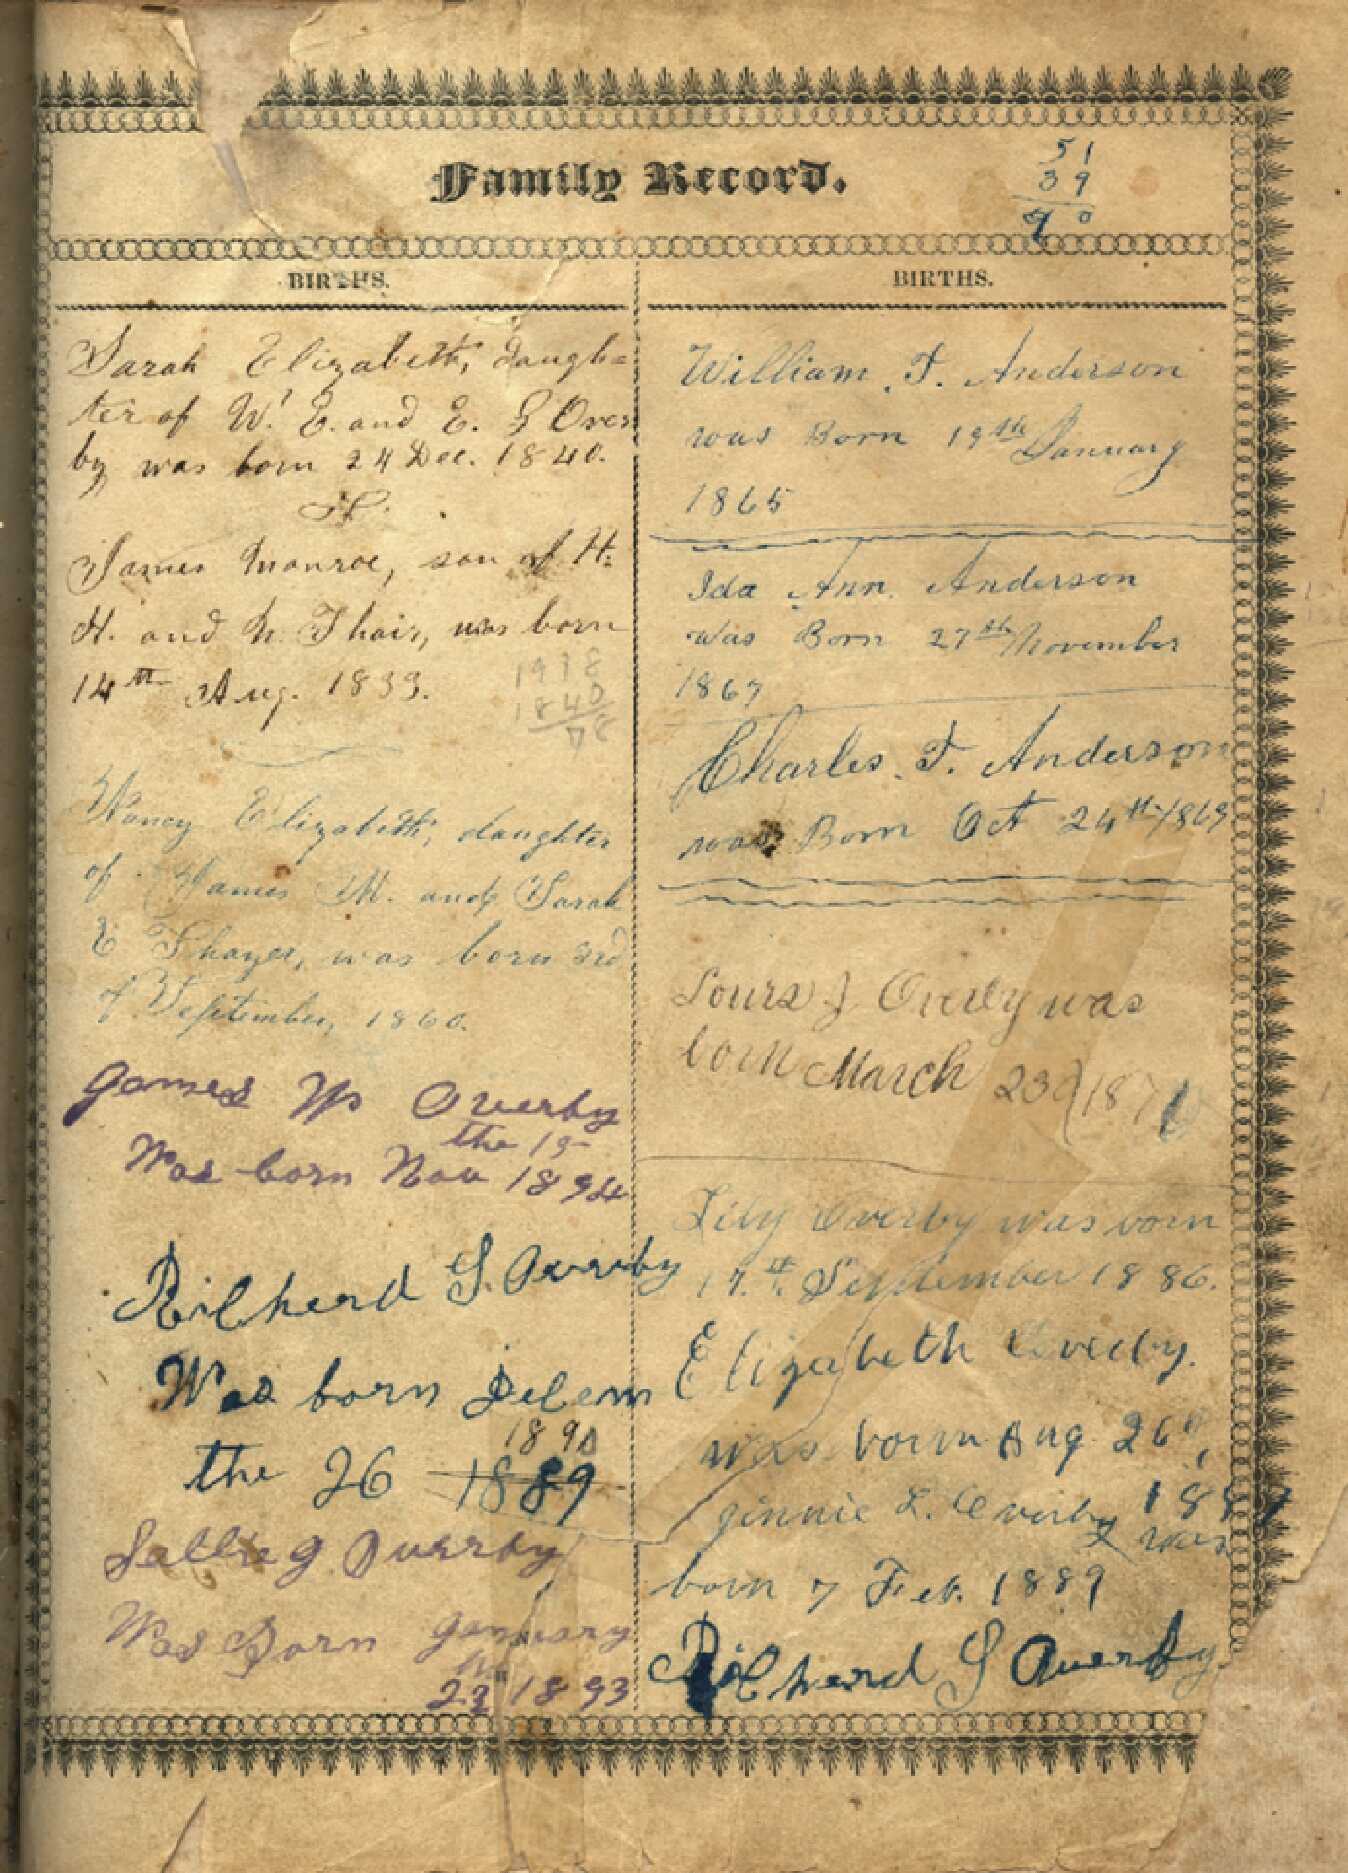 Family Record.
51
39
90
BIRTHS.
Sarah Elizabeth, daugh=
ter of W. E. and E. G Over
by was born 24 Dec. 1840.
James Monroe, son of H.
H. and N. Thair, was born
14th Aug. 1839.
1918
1840
78
Nancy Elizabeth, daughter
of James M. and Sarah
E Thayer, was born 3rd
of September, 1860.
James W Overby
the 19
Was born Nov 1894
Richerd S. Overby
Was born Decem
1890
the 26 1889
Sallie g Overby
Was Born January
23 1893
BIRTHS.
William. T. Anderson
was Born 19th January
1865
Ida Ann. Anderson
was Born 27th November
1867
Charles. T. Anderson
was Born Oct 24th 1869
J Overby was
born March 23d 187
Lily Overby was born
17.th. September 1886.
Elizabeth Overby.
was born Aug 26th,
188
Jinnie L. Overby was
born 7 Feb. 1889
Richerd S Overby.